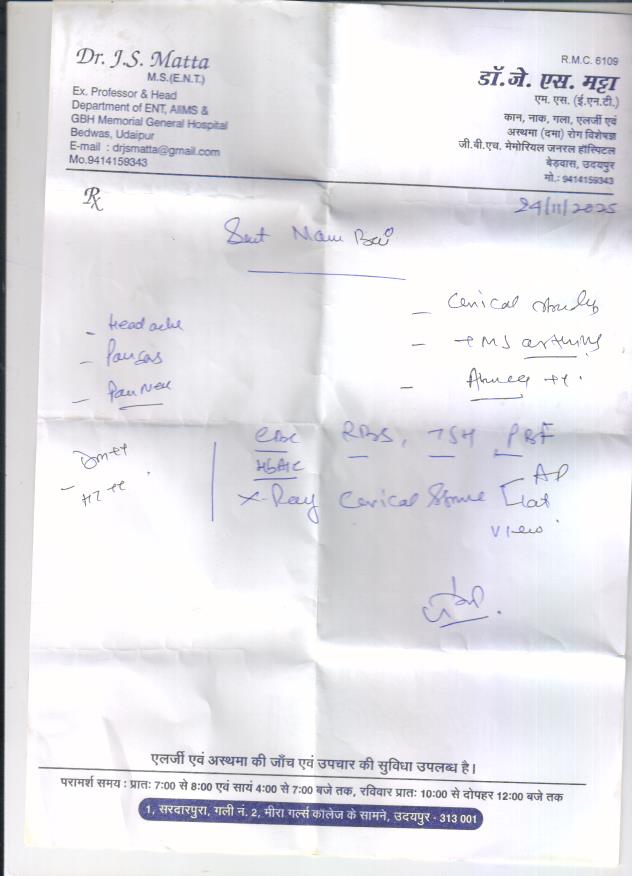 Dr. J.S. Matta
M.S.(E.N.T.)
Ex. Professor & Head
Department of ENT, AIIMS &
GBH Memorial General Hospital
Bedwas, Udaipur
E-mail : drjsmatta@gmail.com
Mo.9414159343
R.M.C. 6109
डॉ.जे. एस. मट्टा
एम. एस. (ई.एन.टी.)
कान, नाक, गला, एलर्जी एवं
अस्थमा (दमा) रोग विशेषज्ञ
जी.बी.एच. मेमोरियल जनरल हॉस्पिटल
बेड़वास, उदयपुर
मो.: 9414159343
Rx
24/11/2025
Bai
- Headache
-
-
- Cervical
-
-
CBC RBS, TSH PBF
HbA1c
X-Ray Cervical Spine AP
Lat
view
एलर्जी एवं अस्थमा की जाँच एवं उपचार की सुविधा उपलब्ध है।
परामर्श समय : प्रातः 7:00 से 8:00 एवं सायं 4:00 से 7:00 बजे तक, रविवार प्रातः 10:00 से दोपहर 12:00 बजे तक
1, सरदारपुरा, गली नं. 2, मीरा गर्ल्स कॉलेज के सामने, उदयपुर - 313 001